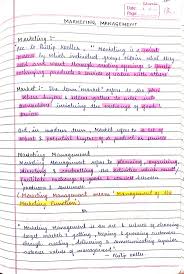 Date
Page 12
MARKETING MANAGEMENT
Marketing :-
Acc. to Philip Kotler, " Marketing is a social
process by which individual groups obtain what they
need and want through creating offerings & freely
exchanging products & services of value with others
Market :- The term 'market' refers to the place
where buyers & sellers gather to enter into
transactions involving the exchange of goods
& services
But, in modern term, Market refers to a set of
actual & potential buyers of a product or service
Marketing Management
Marketing Management refers to planning, organising,
directing & controlling the activities which
facilitate exchange of goods & services between
producers & consumers
Marketing Management means 'Management of the
Marketing Functions'
OR
" Marketing Management is the art & science of choosing
target markets & getting, keeping & growing customers
through creating, delivering & communicating superior
customer values of management"
Philip Kotler